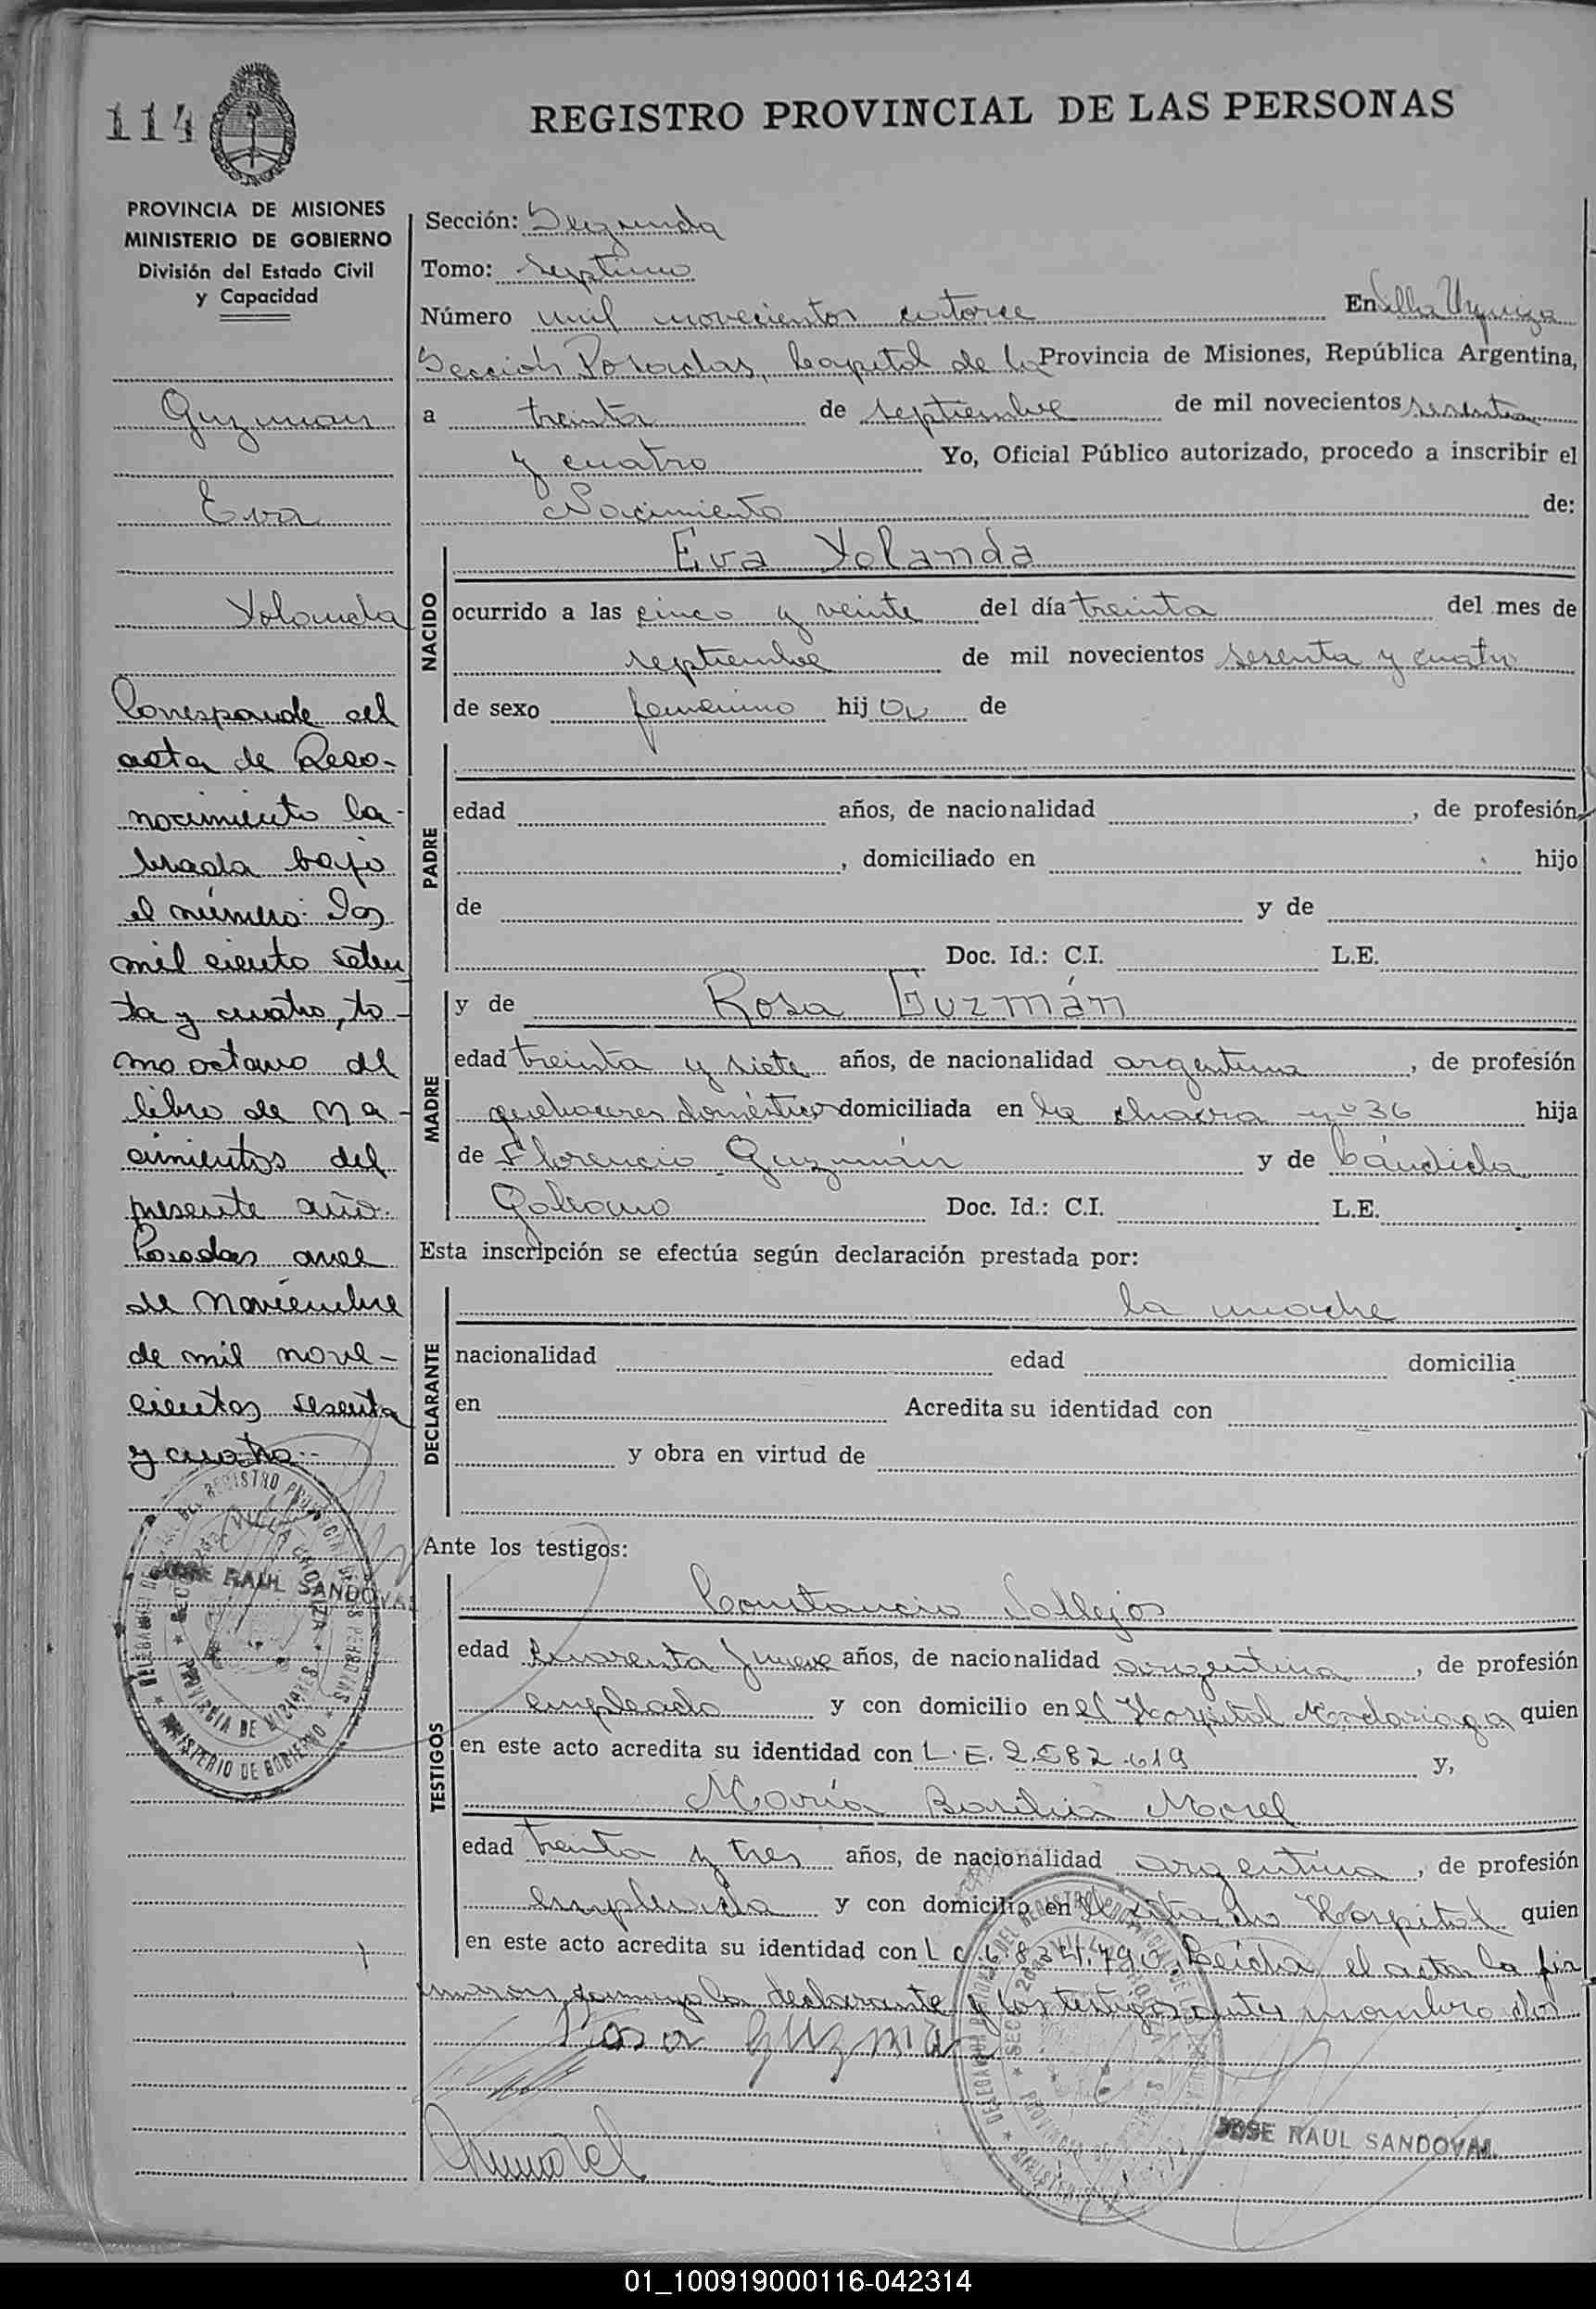 114
REGISTRO PROVINCIAL DE LAS PERSONAS
PROVINCIA DE MISIONES
MINISTERIO DE GOBIERNO
División del Estado Civil
y Capacidad
Guzman
Eva
Yolanda
Corresponde al
acta de Reco-
nocimiento la-
brada bajo
el número: Dos
mil ciento seten
ta y cuatro, to-
mo octavo del
libro de na-
cimientos del
presente año.
Posadas once
de Noviembre
de mil nove-
cientos sesenta
y cuatro.-
JOSE RAUL SANDOVAL
Sección: Segunda
Tomo: septimo
Número mil novecientos catorce En Villa Urquiza
Sección Posadas, Capital de la Provincia de Misiones, República Argentina,
a treinta de septiembre de mil novecientos sesenta
y cuatro Yo, Oficial Público autorizado, procedo a inscribir el
Nacimiento de:
NACIDO
Eva Yolanda
ocurrido a las cinco y veinte del día treinta del mes de
septiembre de mil novecientos sesenta y cuatro
de sexo femenino hija de
PADRE
edad años, de nacionalidad , de profesión
, domiciliado en hijo
de y de
Doc. Id.: C.I. L.E.
MADRE
y de Rosa Guzmán
edad treinta y siete años, de nacionalidad argentina, de profesión
quehaceres domésticos domiciliada en la chacra nº 36 hija
de Florencio Guzmán y de Cándida
Galeano Doc. Id.: C.I. L.E.
Esta inscripción se efectúa según declaración prestada por:
DECLARANTE
la madre
nacionalidad edad domicilia
en Acredita su identidad con
y obra en virtud de
Ante los testigos:
TESTIGOS
Constancio Vallejos
edad cuarenta y nueve años, de nacionalidad argentina, de profesión
empleado y con domicilio en el Hospital Madariaga quien
en este acto acredita su identidad con L.E. 2.582.619 y,
María Basilia Morel
edad treinta y tres años, de nacionalidad argentina, de profesión
empleada y con domicilio en el citado Hospital quien
en este acto acredita su identidad con L.C. Leída el acta la fir
man conmigo la declarante y los testigos antes nombrados
Rosa Guzman
JOSE RAUL SANDOVAL
01_100919000116-042314